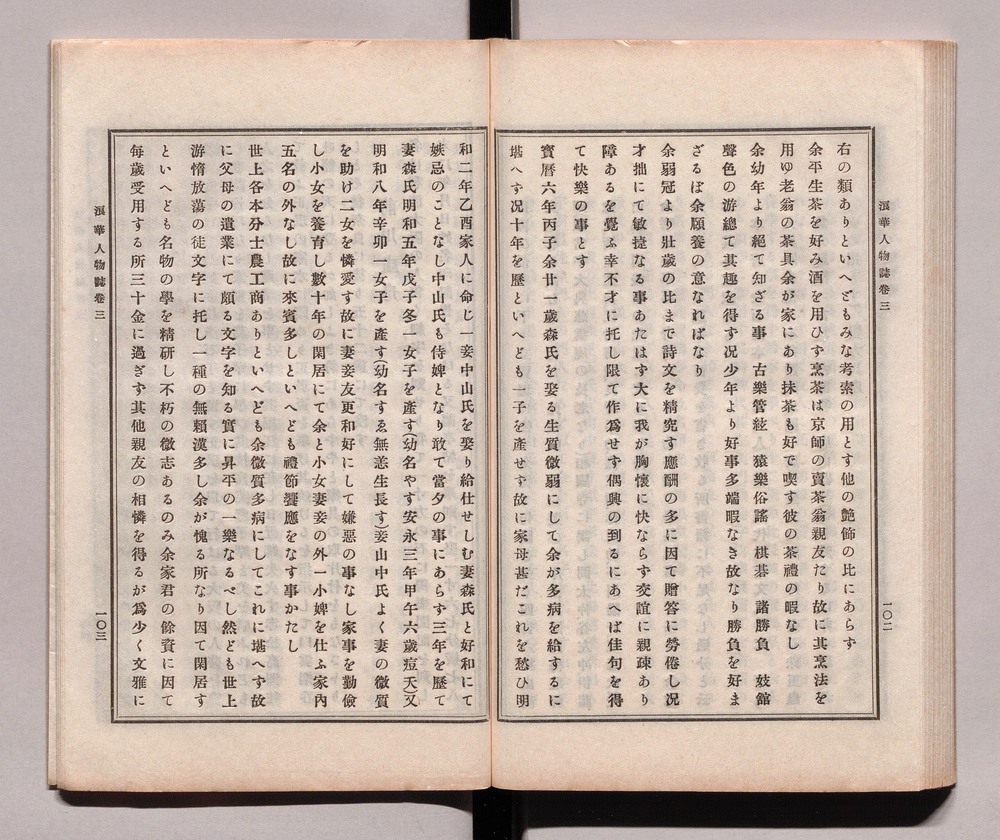 浪華人物誌卷三
一〇二
右の類ありといへどもみな考索の用とす他の艶飾の比にあらす
余平生茶を好み酒を用ひす烹茶は京師の賣茶翁親友たり故に其烹法を
用ゆ老翁の茶具余が家にあり抹茶も好で喫す彼の茶禮の暇なし
余幼年より絕て知ざる事 古樂管絃 猿樂俗謠 棋碁 諸勝負 妓館
聲色の游總て其趣を得す況少年より好事多端暇なき故なり勝負を好ま
ざるは余願養の意なればなり
余弱冠より壯歲の比まで詩文を精究す應酬の多に因て贈答に勞倦し況
才拙にて敏捷なる事あたはす大に我が胸懷に快ならす交誼に親疎あり
障あるを覺ふ幸不才に托し限て作爲せす偶興の到るにあへば佳句を得
て快樂の事とす
寳曆六年丙子余廿一歲森氏を娶る生質微弱にして余が多病を給するに
堪へす況十年を歷といへども一子を產せす故に家母甚だこれを愁ひ明
和二年乙酉家人に命じ一妾中山氏を娶り給仕せしむ妻森氏と好和にて
嫉忌のことなし中山氏も侍婢となり敢て當夕の事にあらす三年を歷て
妻森氏明和五年戊子冬一女子を產す(幼名やす安永三年甲午六歲痘夭)又
明和八年辛卯一女子を產す(幼名すゑ無恙生長す)妾山中氏よく妻の微質
を助け二女を憐愛す故に妻妾友更和好にして嫌惡の事なし家事を勤儉
し小女を養育し數十年の閑居にて余と小女妻妾の外一小婢を仕ふ家內
五名の外なし故に來賓多しといへども禮節饗應をなす事かたし
世上各本分士農工商ありといへども余微質多病にしてこれに堪へす故
に父母の遺業にて頗る文字を知る實に昇平の一樂なるべし然ども世上
游惰放蕩の徒文字に托し一種の無賴漢多し余が愧る所なり因て閑居す
といへども名物の學を精研し不朽の微志あるのみ余家君の餘資に因て
每歲受用する所三十金に過ぎす其他親友の相憐を得るが爲少く文雅に
浪華人物誌卷三
一〇三